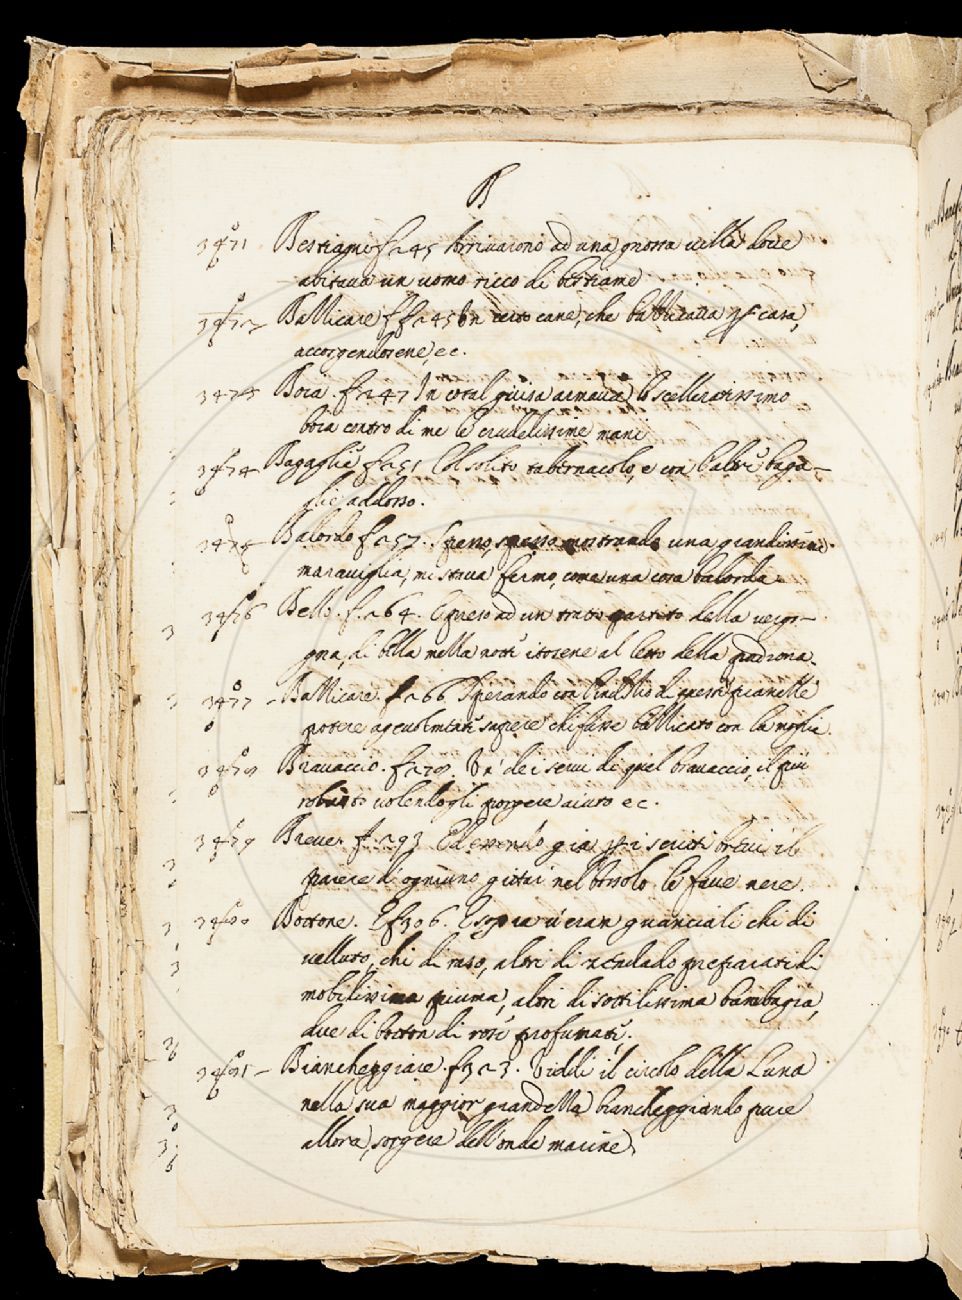 B
3471 Bestiame f 245 Arrivarono ad una grossa villa dove
abitava un uomo ricco di bestiame
Batticare f f 245 Un certo cane, che batticava p casa,
accorgendosene, ec.
Boia . f. 247 In cotal guisa armava lo scelleratissimo
boia contro di me le crudelissime mani
3474 Bagaglie f. 251 Col solito tabernacolo, e con l'altre baga-
glie addosso.
Balordo f 257. spesso, spesso mostrando una grandissima
maraviglia, mi stava fermo, come una cosa balorda.
3476 Bello . f. 264. E preso ad un tratto partito della vergo-
gna, di bella mella notte itosene al letto della padrona.
3477 - Batticare . f. 266 Sperando con l'indizio di queste pianelle
potere agevolmente sapere chi fusse batticato con la moglie.
Bravaccio . f. 279. Un de i servi di quel bravaccio, il più
robusto volendogli porgere aiuto ec.
3479 Breve . f. 293 Ed essendo già p i scritti brevi il
parere di ogniuno gittar nel bossolo le fave nere.
Bottone . E f 306. E sopra v'eran guanciali chi di
velluto, chi di raso, altri di zendado preparati di
mobilissima piuma, altri di sottilissima bambagia,
due di botton di rose profumate.
Biancheggiare . f. 323. Viddi il circolo della Luna
nella sua maggior grandezza biancheggiando pure
allora, sorgere dell'onde marine,